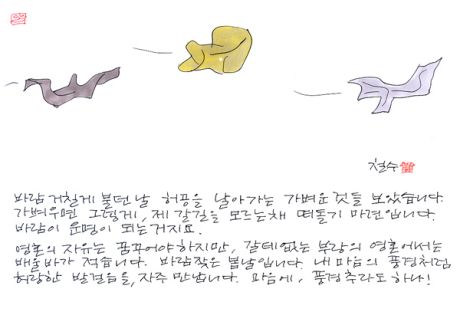 철수
바람 거칠게 불던 날 허공을 날아가는 가벼운 것들 보았습니다.
가벼우면 그렇게, 제 갈길을 모르는채 떠돌기 마련입니다.
바람이 운명이 되는거지요.
영혼의 자유는 꿈꾸어야 하지만, 갈데없는 부랑의 영혼에서는
배울바가 적습니다. 바람잦은 봄날입니다. 내 마음의 풍경처럼
허랑한 발걸음들, 자주 만납니다. 마음에, 풍경추라도 하나!